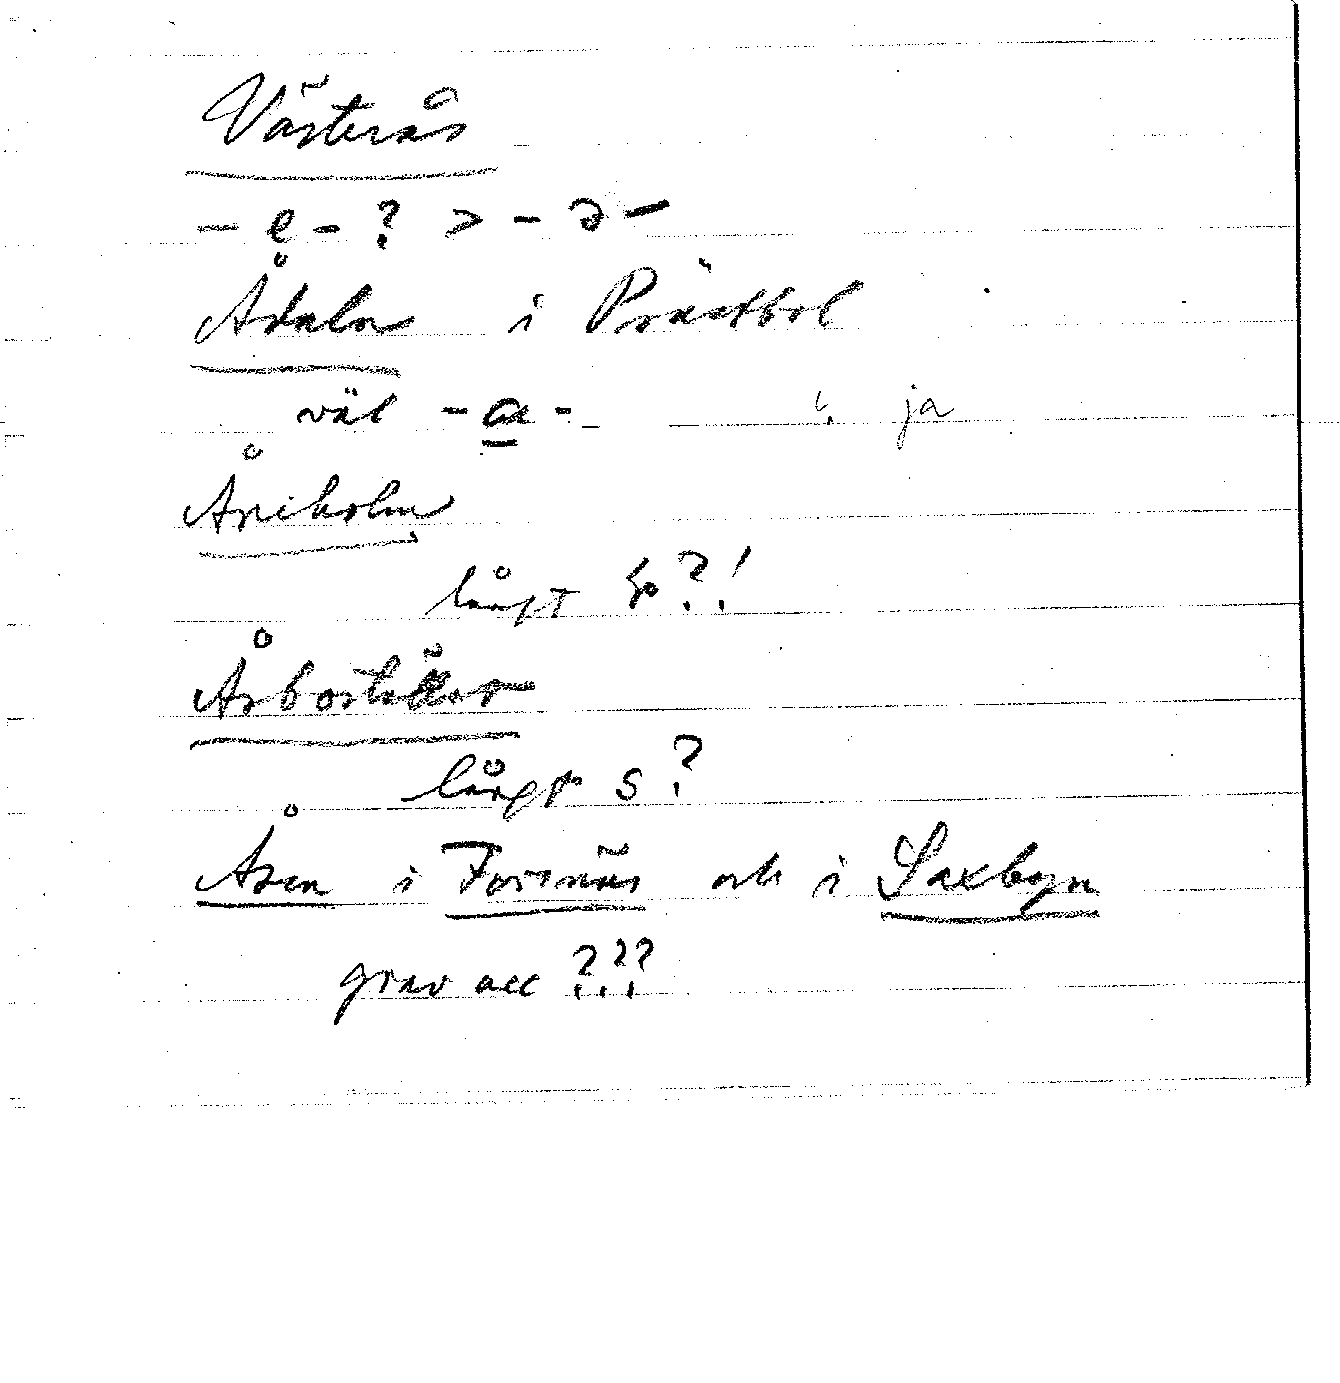 Västerås
- e - ? > - ə -
Ådaln i Prästbol
väl - a - ja
långt ?!
Årbostäkar
långt s?
Åsen i Forsnäs och i Saxbyn
grav acc ???